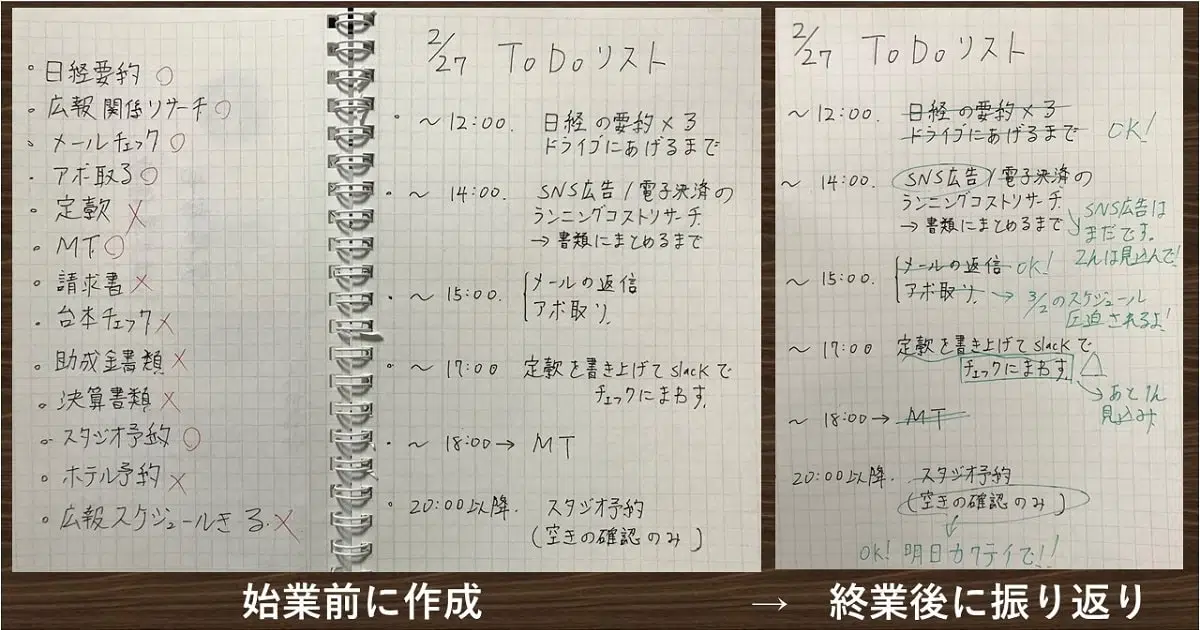 ・日経要約 ○
・広報関係リサーチ○
・メールチェック○
・アポ取る○
・定款 ×
・MT○
・請求書×
・台本チェック×
・助成金書類×
・決算書類×
・スタジオ予約○
・ホテル予約×
・広報スケジュールきる.×
2/27 ToDoリスト
・〜12:00. 日経の要約×3
ドライブにあげるまで
・〜14:00. SNS広告/電子決済の
ランニングコストリサーチ.
→書類にまとめるまで
・〜15:00. メールの返信
アポ取り.
・〜17:00 定款を書き上げてslackで
チェックにまわす.
・〜18:00→ MT
・20:00以降. スタジオ予約
(空きの確認のみ)
2/27 ToDoリスト
〜12:00. 日経の要約×3
ドライブにあげるまで OK!
〜14:00. SNS広告/電子決済の
ランニングコストリサーチ.
→書類にまとめるまで
SNS広告は
まだです。
2hは見込んで!
〜15:00. メールの返信 OK!
アポ取り. → 3/2のスケジュール
圧迫されるよ!
〜17:00 定款を書き上げてslackで
チェックにまわす. △
→あと1h
見込み
〜18:00→ MT
20:00以降. スタジオ予約
(空きの確認のみ)
OK! 明日カクテイで!!
始業前に作成 → 終業後に振り返り